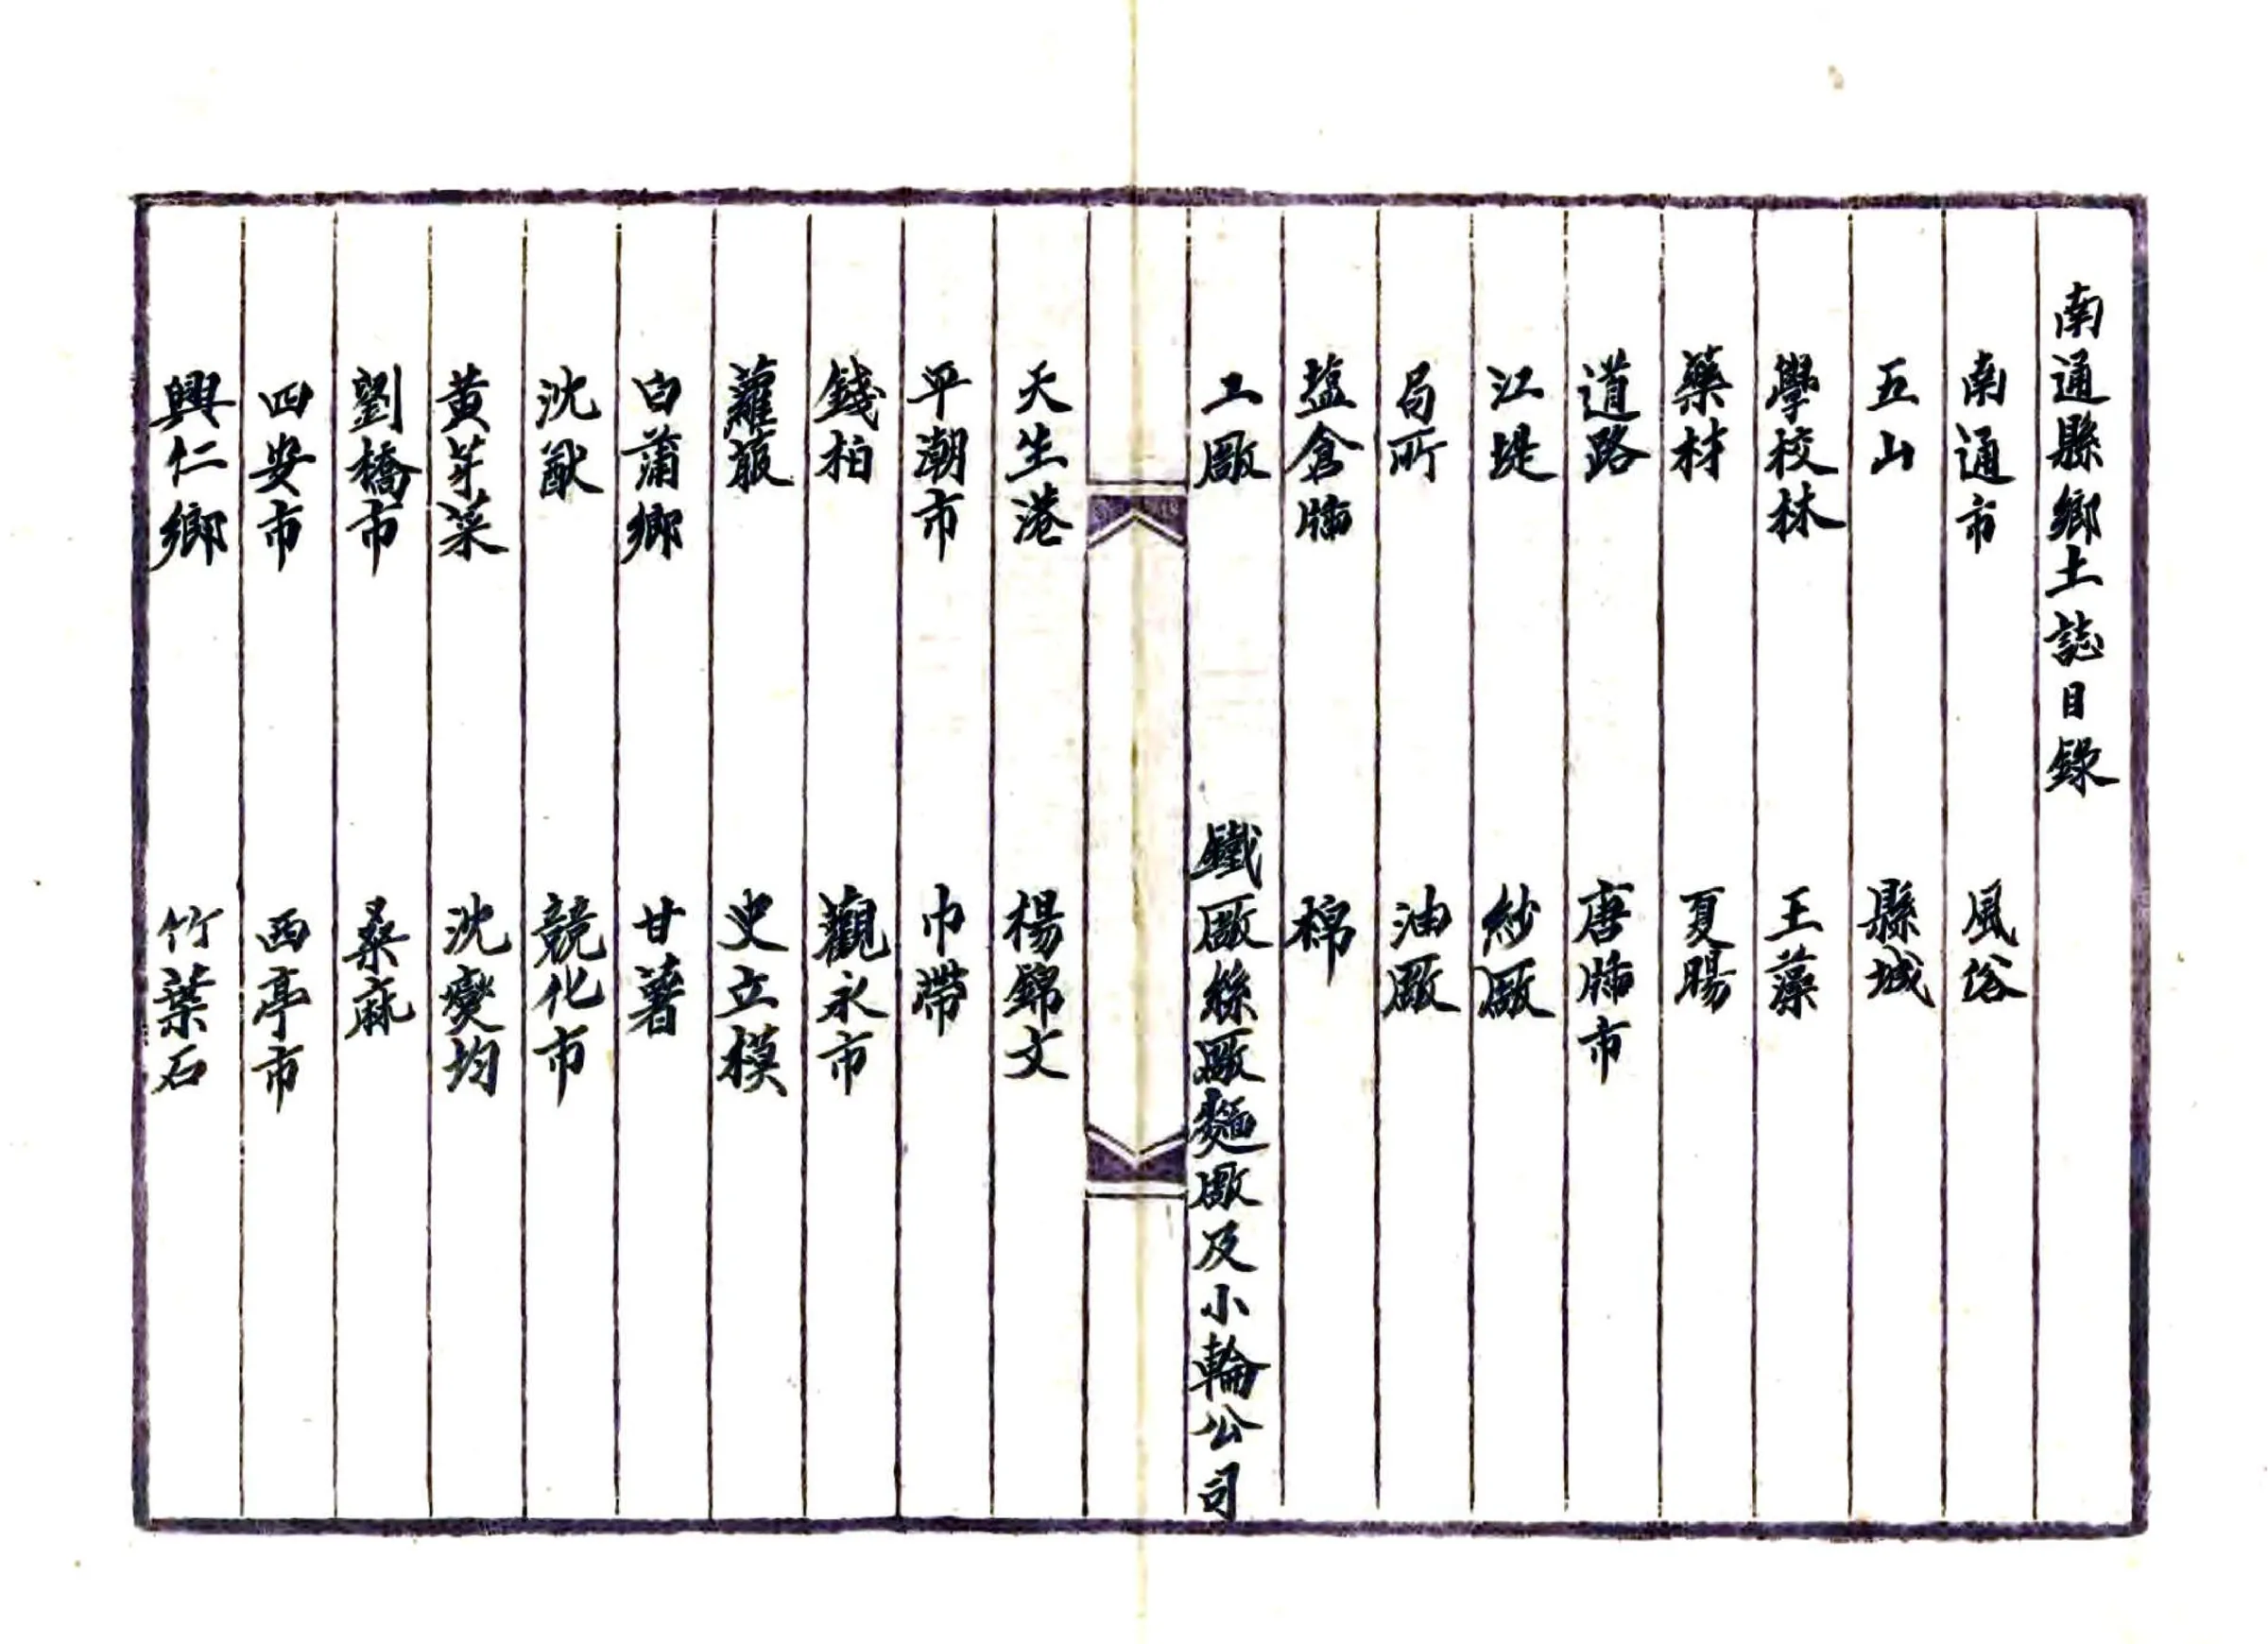 南通縣鄉土誌目錄
南通市 風俗
五山 縣城
學校林 王藻
藥材 夏腸
道路 唐牐市
江堤 紗厰
局所 油厰
塩倉牐 棉
工厰 鐵厰絲厰麵厰及小輪公司
天生港 楊錦文
平潮市 巾帶
錢柏 觀永市
蘿蔔 史立模
白蒲鄉 甘薯
沈猷 競化市
黃芽菜 沈燮均
劉橋市 桑麻
四安市 西亭市
興仁鄉 竹葉石